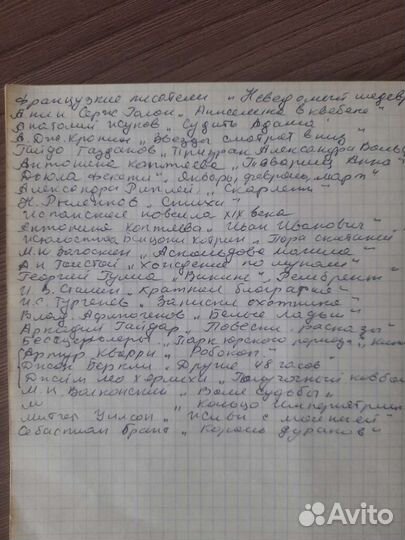 Французкие писатели „Неведомый шедевр
Анн и Серж Голон „Анжелика в Квебеке"
Анатолий Жуков „Судить Адама"
А. Дж. Кронин „Звезды смотрят вниз"
Гайдо Газданов „Призрак Александра Вольфа
Антонина Коптяева „Товарищ Анна"
Дюла Фекете „Январь, февраль, март"
Александра Риплей „Скарлетт"
Н. Рыленков „Стихи"
Испанская новелла XIX века
Антонина Коптяева „Иван Иванович"
„Пора скитаний"
М. Н. Загоскин „Аскольдова могила"
А. Н. Толстой „Хождение по мукам"
Георгий Гулиа „Викинг" „Рембрант"
И. В. Сталин „Краткая биография"
И. С. Тургенев „Записки охотника"
Влад. Афиногенов „Белые лады"
Аркадий Гайдар „Повести. Рассказы"
Бестселлеры „Парк юрского периода"
Артур Кварри „Робокоп"
Джон Беркли „Другие 48 часов
Джеймс Лео Херлихи „Полуночный ковбой
М. Н. Волконский „Воля судьбы"
М „Кольцо императрицы
Митчел Уилсон „Живи с молнией"
Себастиан Брант „Корабль дураков"
Avito